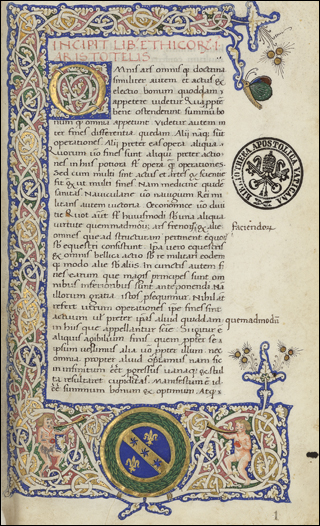 INCIPIT LIB. ETHICORV. I.
ARISTOTELIS.
OMnis ars omnisq; doctrina
similiter autem et actus &
electio bonum quoddam
appetere videtur
bene ostenderunt summũ bo
num qđ omnia appetunt Videtur autem in
ter fines differentia quedam. Alij naq; sũt
operationes. Alij preter eas opera aliqua
Quorum vero fines sunt aliqui preter actio
nes in his potiora sũt opera q̃ operationes
Sed cum multi sint actus et artes & scientie
fit ut multi sint fines. Nam medicine quidẽ
sanitas. navigium Rei mi
litaris autem victoria. Oeconomice vero divi
tie Quot aut sũt huiusmodi sub una aliqua
virtute quemadmodũ; frenosq; & alie
omnes que ad pertinent equos
sub equestri consistunt. Ipa vero equestris
& omnis bellica actio sub re militari eodem
q; modo alie sub alijs. In cunctis autem fi
nes earum que magis principes sunt om
nibus inferioribus sunt anteponendi. Na
illorum gratia istos psequimur. Nihil at
refert utrum operationes ipe fines sint
actuum vel preter ipas aliud quiddam
in his que appellantur scientie. Si igitur é
aliquis agibilium finis quem propter se
ipsum velimus alia vo propter illum nec
omnia propter aliud optamus nam sic
in infinitum
ta resultaret cupiditas. Manifestum é id
éé summum bonum & optimum. Atq;
faciendor
quemadmodũ
BIBLIOTHECA APOSTOLICA VATICANA
1